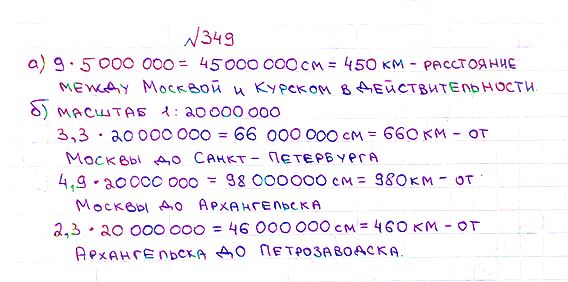 №349
а) 9 · 5 000 000 = 45 000 000 см = 450 км - расстояние
между Москвой и Курском в действительности.
б) масштаб 1 : 20 000 000
3,3 · 20 000 000 = 66 000 000 см = 660 км - от
Москвы до Санкт-Петербурга
4,9 · 20 000 000 = 98 000 000 см = 980 км - от
Москвы до Архангельска
2,3 · 20 000 000 = 46 000 000 см = 460 км - от
Архангельска до Петрозаводска.